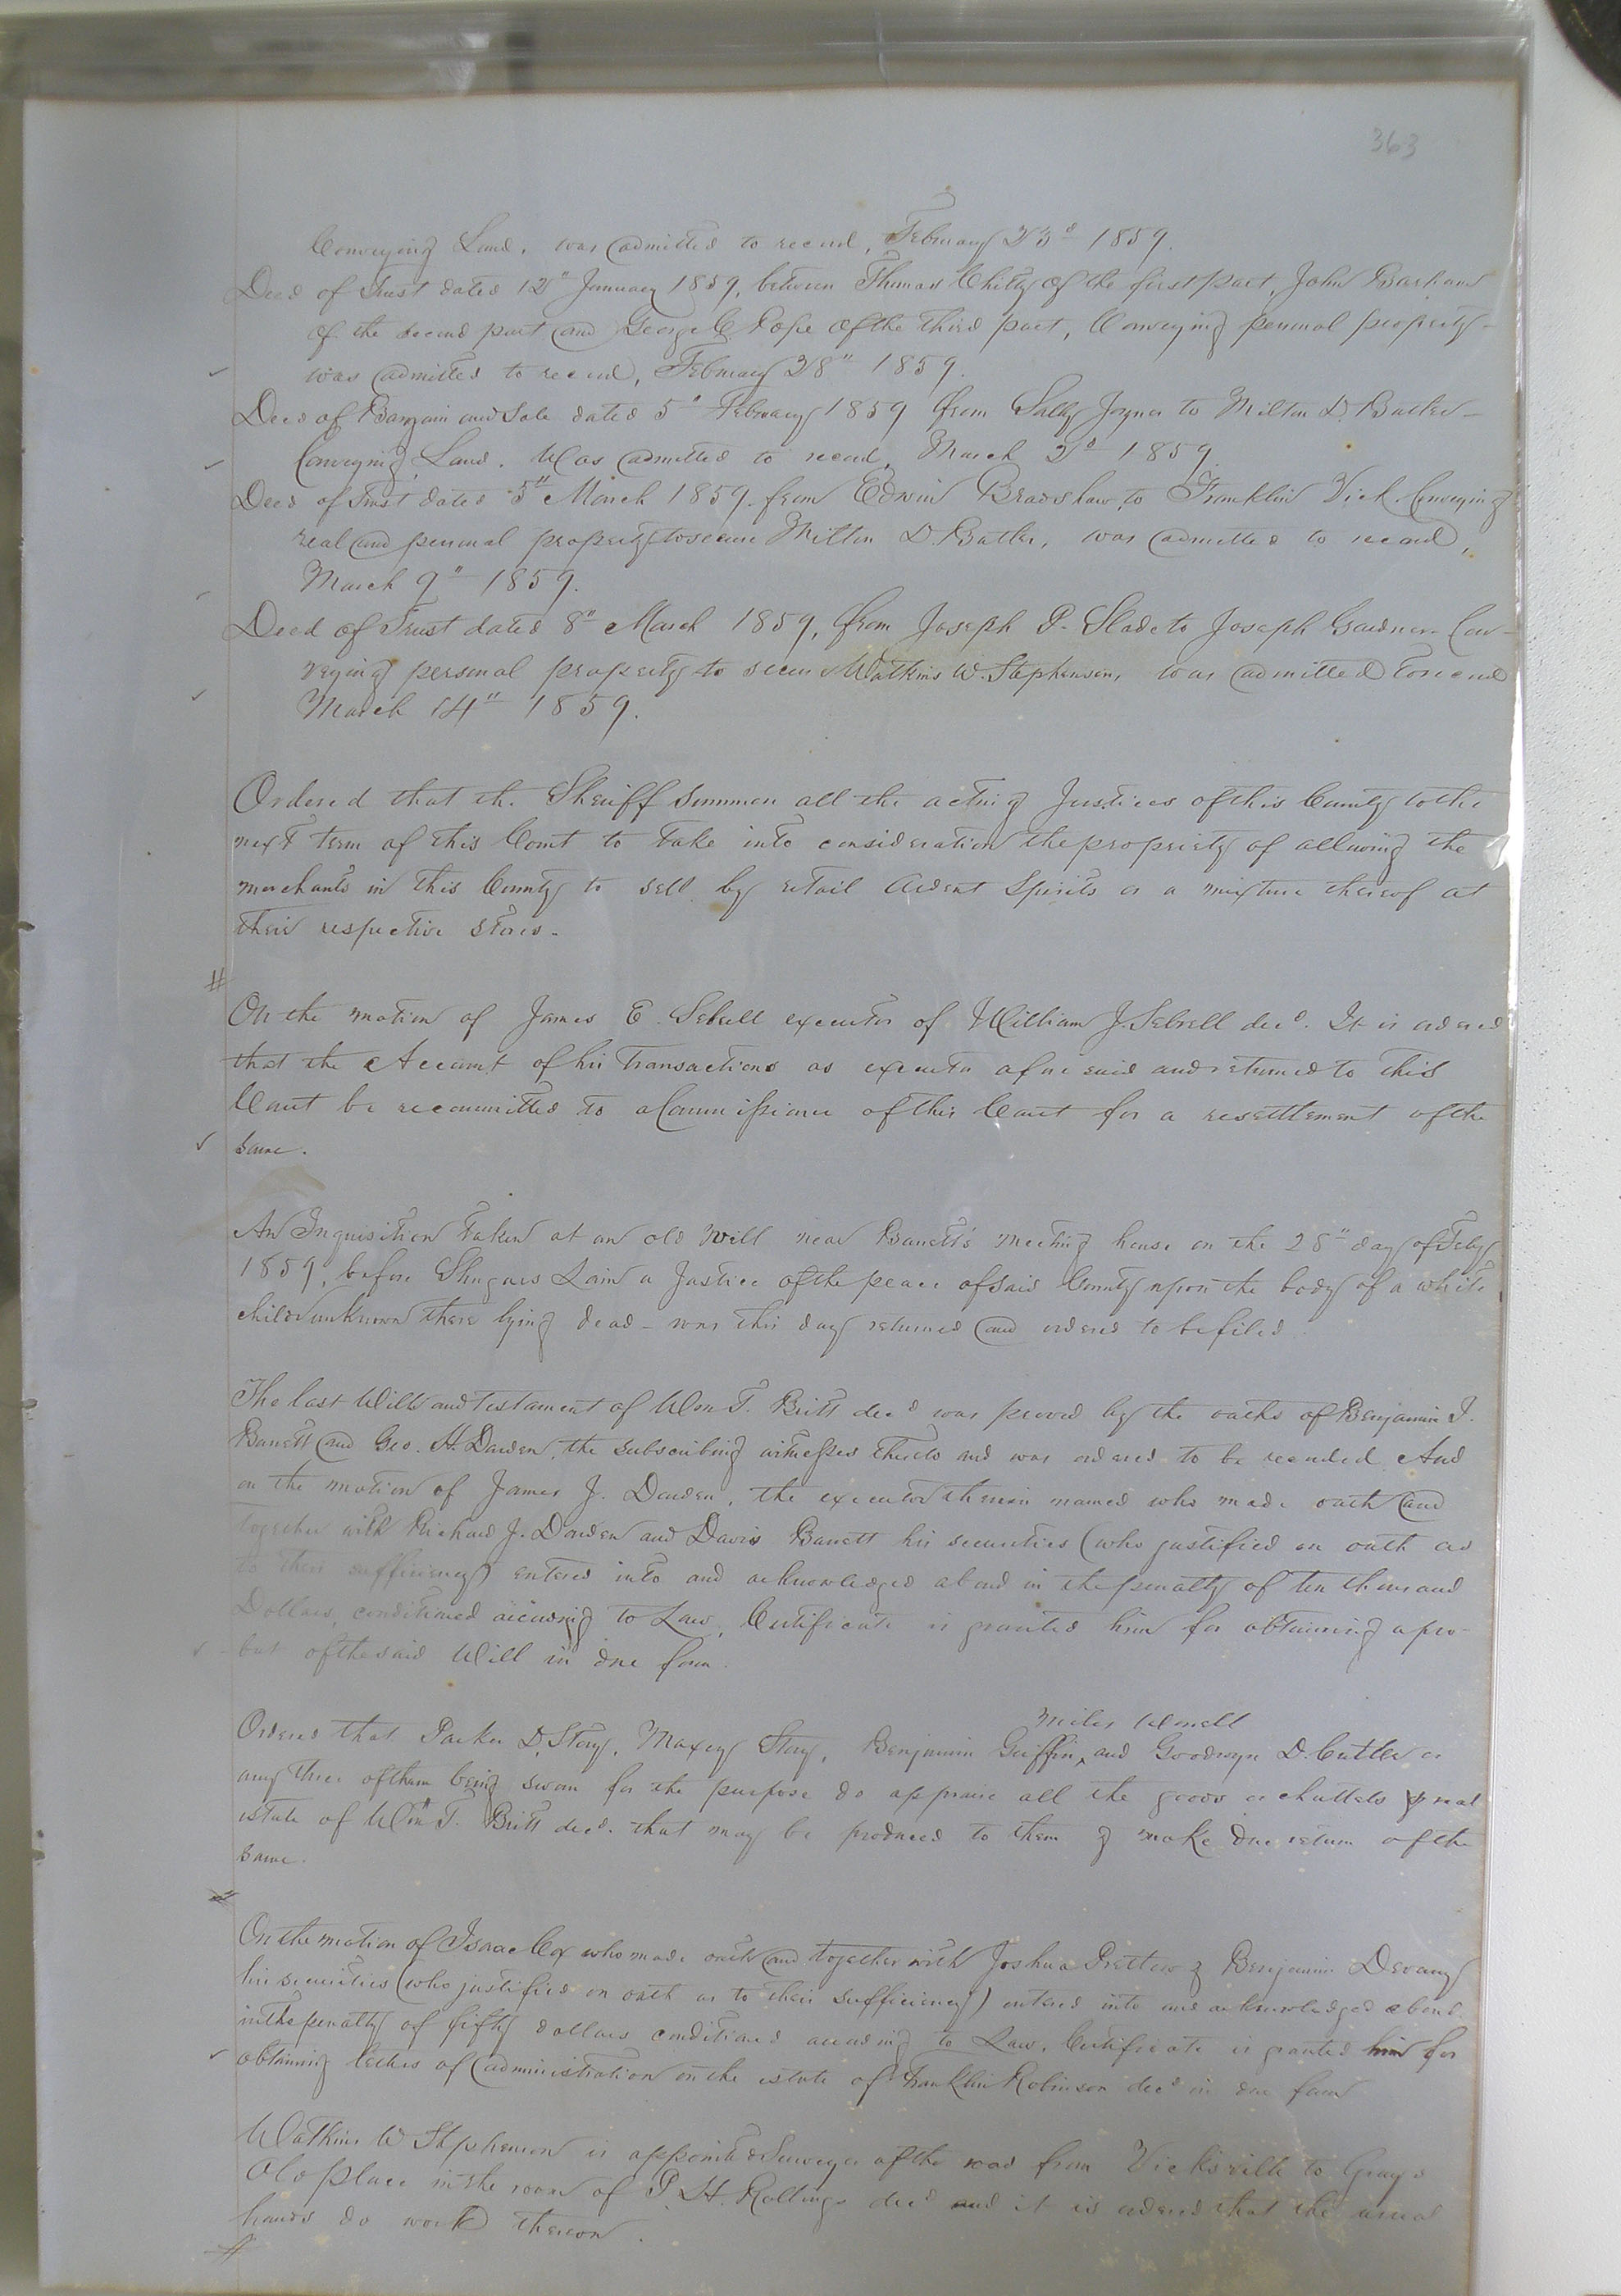 363
Conveying Land, was admitted to record, February 23d 1859.
Deed of Trust dated 12" January 1859, between Thomas Chitty of the first part, John Barham
of the second part and George C. Pope of the third part, Conveying personal property
was admitted to record, February 28" 1859.
Deed of Bargain and Sale dated 5" February 1859 from Sally Joyner to Milton D. Butler
Conveying Land. Was admitted to record, March 2d 1859
Deed of Trust dated 5th March 1859 from Edwin Bradshaw to Franklin Vick Conveying
real and personal property to secure Milton D. Butler, was admitted to record,
March 9" 1859.
Deed of Trust dated 8" March 1859, from Joseph P. Slade to Joseph Gardner Con-
veying personal property to secure Watkins W. Stephenson, was admitted to record
March 14" 1859.
Ordered that the Sheriff Summon all the acting Justices of this County to the
next term of this Court to take into consideration the propriety of allowing the
merchants in this County to sell by retail Ardent Spirits or a mixture thereof at
their respective stores.
On the motion of James E. Sebrell executor of William J. Sebrell decd. It is ordered
that the Account of his transactions as executor aforesaid and returned to this
Court be recommitted to a Commissioner of this Court for a resettlement of the
same.
An Inquisition taken at an old Mill near Barrett's meeting house on the 28" day of Feby
1859, before Shugars Lain a Justice of the peace of said County upon the body of a white
child unknown there lying dead - was this day returned and ordered to be filed.
The last Will and testament of Wm T. Britt decd was proved by the oaths of Benjamin J.
Barrett and Geo. H. Darden, the subscribing witnesses thereto and was ordered to be recorded And
on the motion of James J. Darden, the executor therein named who made oath and
together with Richard J. Darden and Davis Barrett his securities (who justified on oath as
to their sufficiency) entered into and acknowledged a bond in the penalty of ten thousand
Dollars, conditioned according to Law, Certificate is granted him for obtaining a pro-
bat of the said Will in due form.
Miles Worrell
Ordered that Parker D. Story, Maxey Story, Benjamin Griffin, and Goodwyn D. Cutler or
any three of them being sworn for the purpose do appraise all the goods or chattels & real
estate of Wm T. Britt decd. that may be produced to them & make due return of the
same.
On the motion of Isaac Cox who made oath and together with Joshua Pretlow & Benjamin Devany
his securities (who justified on oath as to their sufficiency) entered into and acknowledged a bond
in the penalty of fifty dollars conditioned according to Law, Certificate is granted him for
obtaining letters of administration on the estate of Franklin Robinson decd in due form
Watkins W Stephenson is appointed Surveyor of the road from Vicksville to Grays
Old place in the room of P. H. Rollings decd and it is ordered that the usual
hands do work thereon.